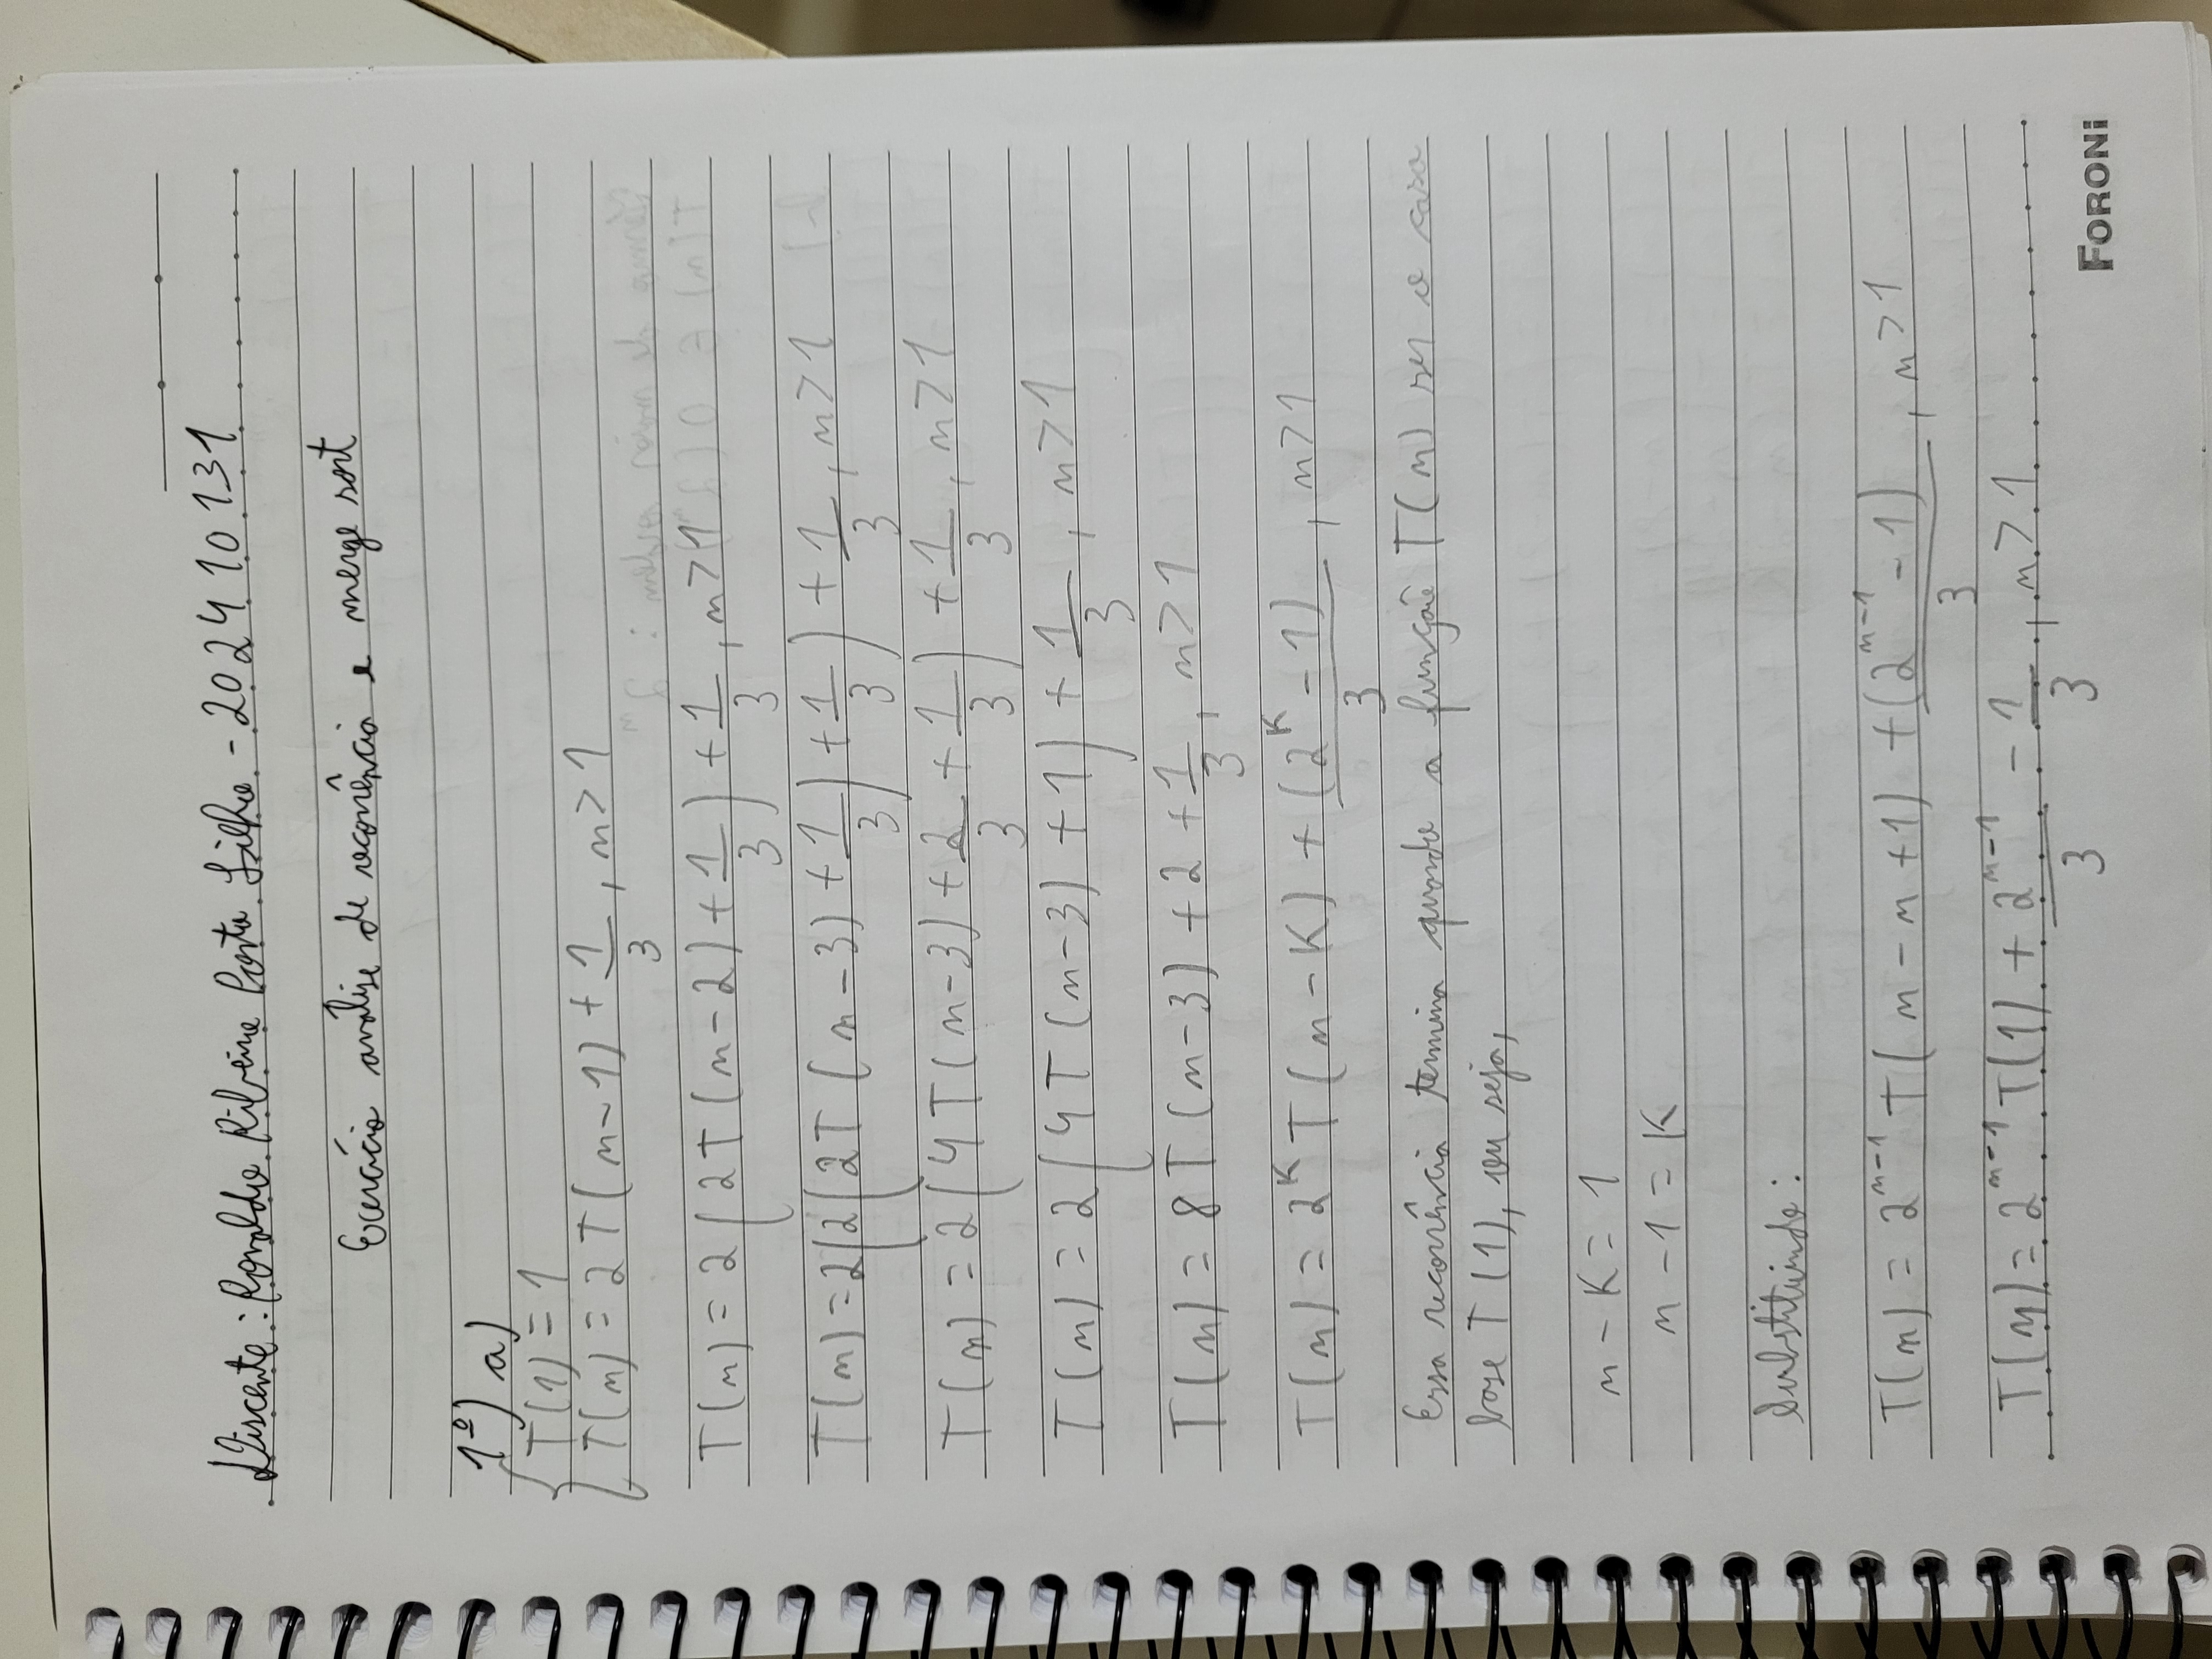 Discente: Ronaldo Ribeiro Porto Filho - 202410131
Exercício análise de recorrência e merge sort
1º) a)
T(1) = 1
T(n) = 2T(n-1) + 1/3, n>1
T(n) = 2(2T(n-2) + 1/3) + 1/3, n>1
T(n) = 2(2(2T(n-3) + 1/3) + 1/3) + 1/3, n>1
T(n) = 2(4T(n-3) + 2/3 + 1/3) + 1/3, n>1
T(n) = 2(4T(n-3) + 1) + 1/3, n>1
T(n) = 8T(n-3) + 2 + 1/3, n>1
T(n) = 2^K T(n-K) + (2^K - 1)/3, n>1
Essa recorrência termina quando a função T(n) ser o caso
base T(1), ou seja,
n - K = 1
n - 1 = K
Substituindo:
T(n) = 2^(n-1) T(n-n+1) + (2^(n-1) - 1)/3, n>1
T(n) = 2^(n-1) T(1) + 2^(n-1)/3 - 1/3, n>1
FORONI